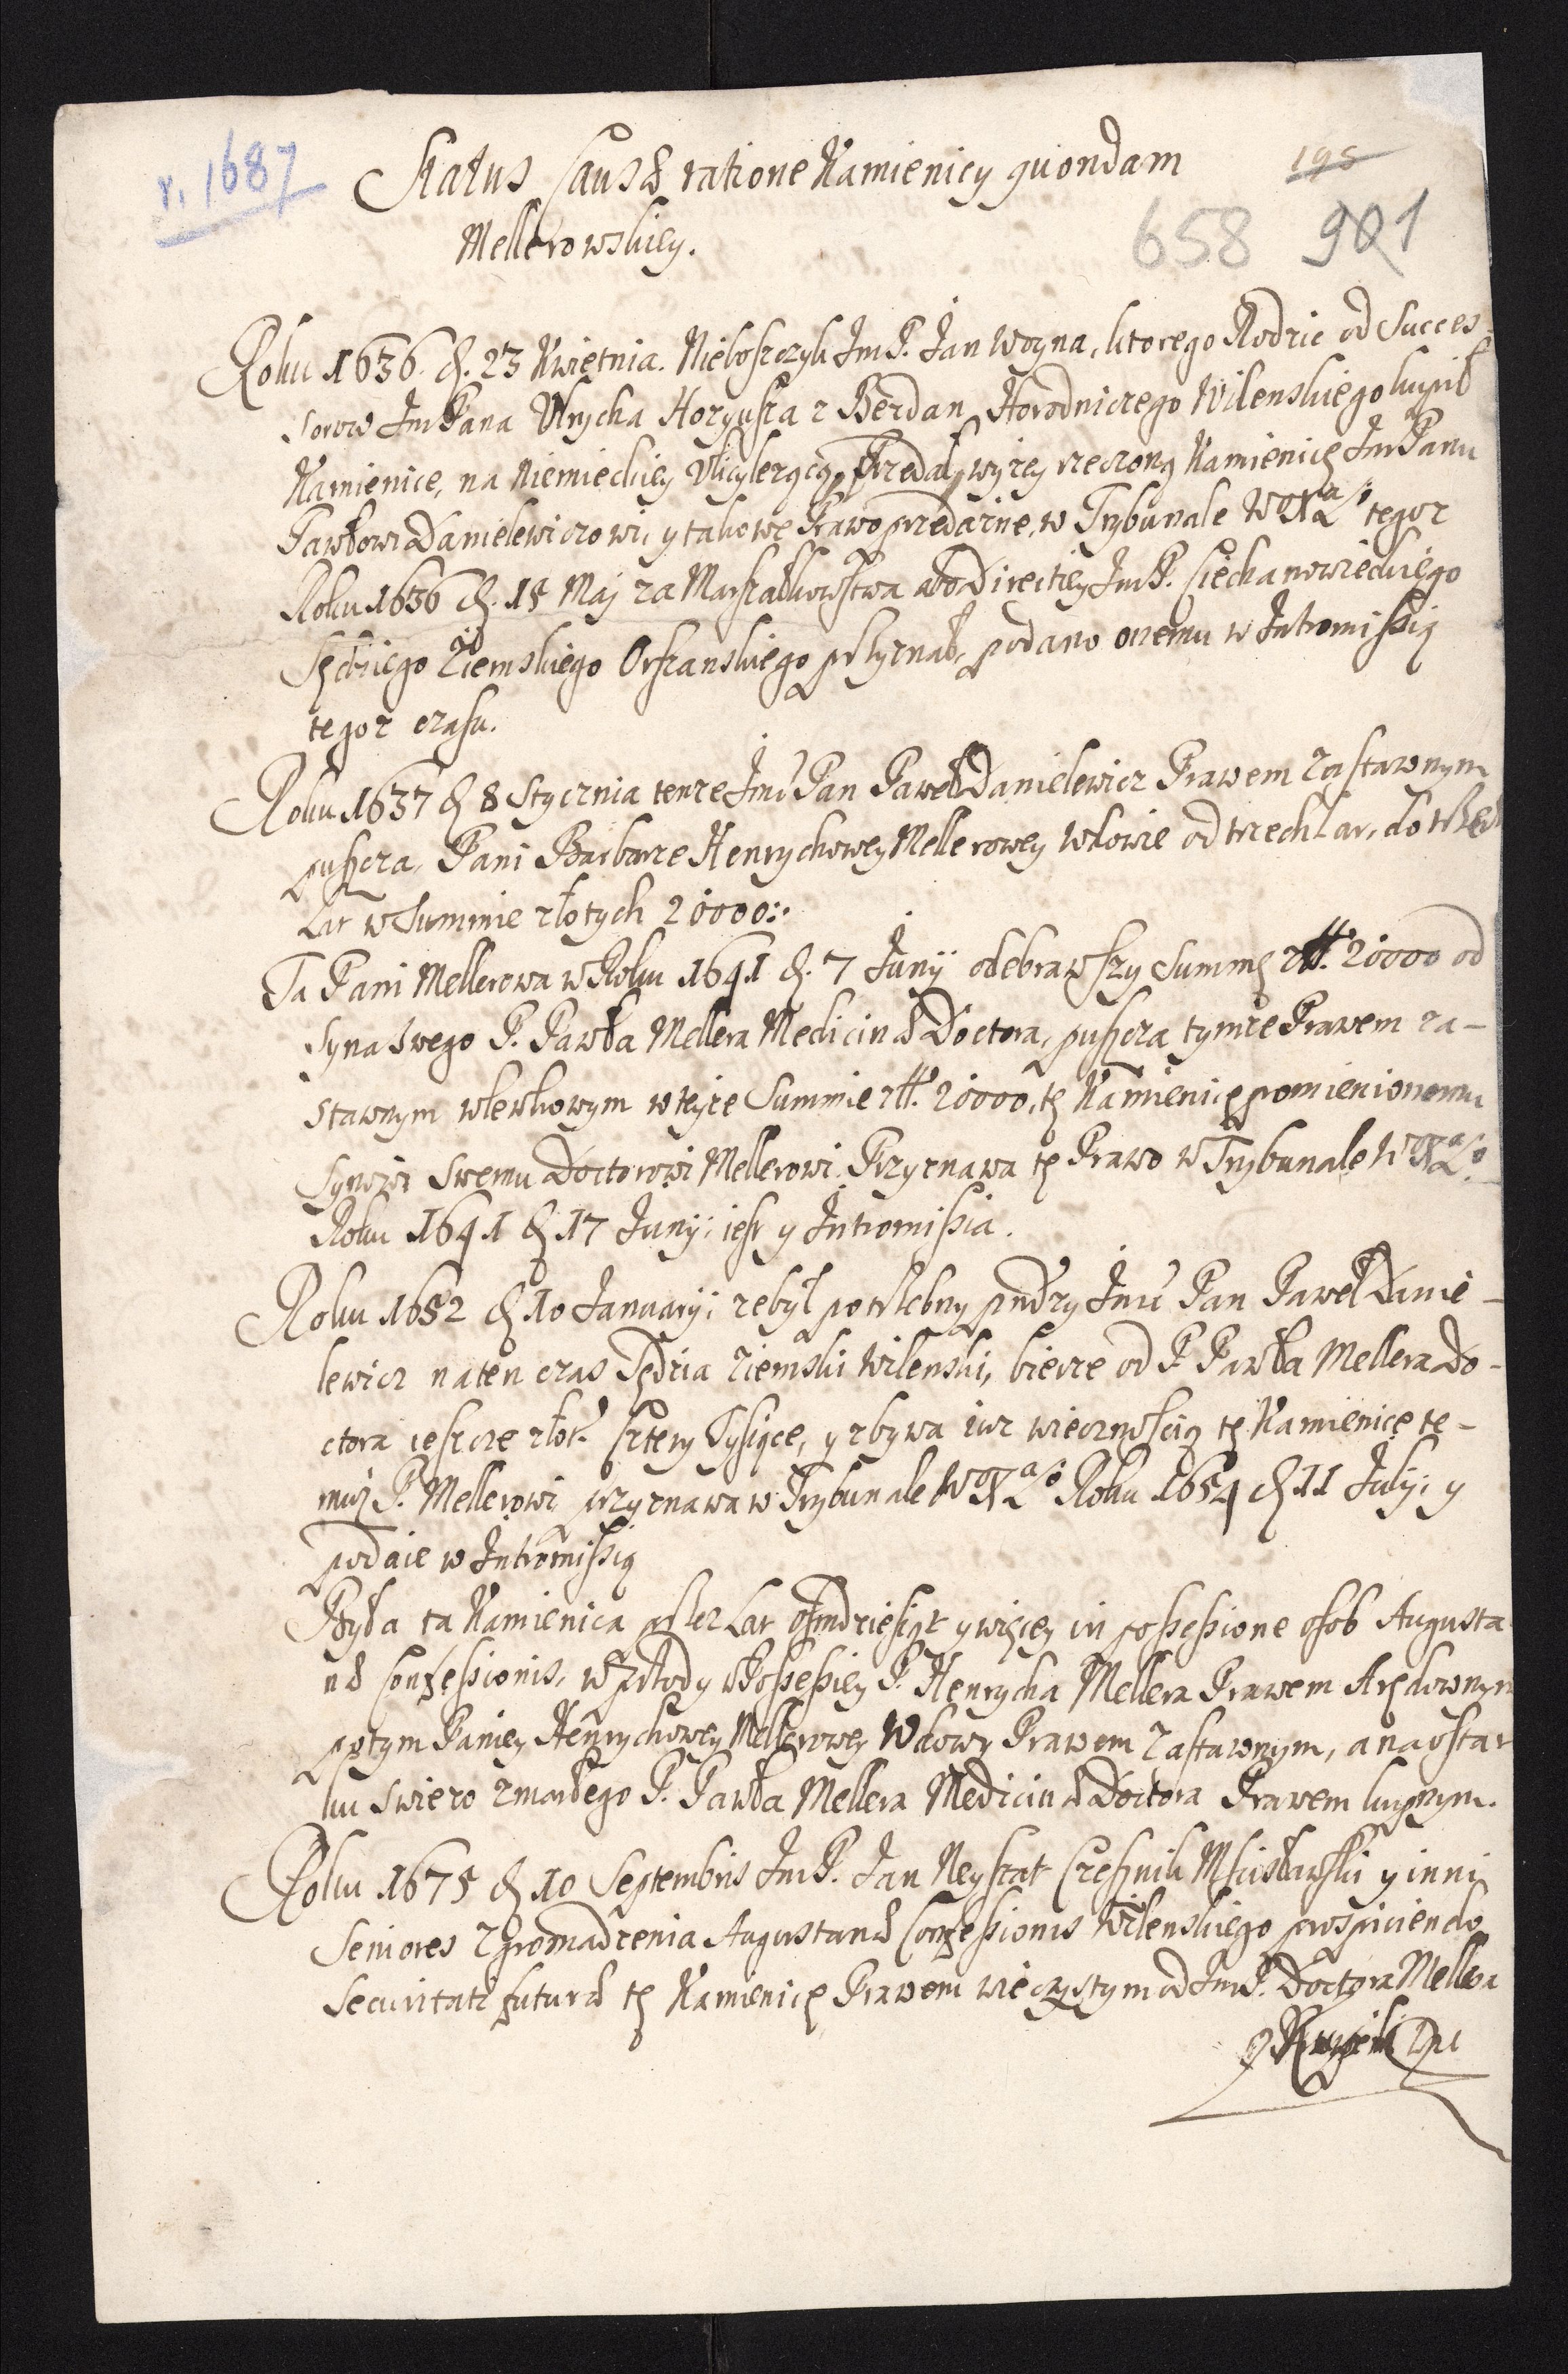 r. 1687
Status Causæ ratione Kamienicy quondam
195
Mellerowskiey.
658 901
Roku 1636. d. 23 Kwietnia. Nieboszczyk Jm P. Jan Woyna, ktorego Rodzic od Succes-
sorow Jm Pana Ulrycha Hozyusza z Berdan Horodniczego Wilenskiego kupił
Kamienice, na Niemieckiey Ulicy lezącą, Przedał wyzey rzeczoną Kamienicę Jm Panu
Pawłowi Danielewiczowi, y takowe Prawo przedazne, w Trybunale W X L tegoz
Roku 1636 d. 15 Maj za Marszałkowstwa abo Directiey Jm P. Ciechanowieckiego
Sędziego Ziemskiego Orszanskiego przyznał, podano onemu w Intromissią
tegoz czasu.
Roku 1637 d 8 Stycznia tenze Jmć Pan Paweł Danielewicz Prawem Zastawnym
puszcza, Pani Barbarze Henrychowey Mellerowey Wdowie od trzech Lat, do trzech
Lat w Summie złotych 20000:.
Ta Pani Mellerowa w Roku 1641 d. 7 Junij odebrawszy Summę zł. 20000 od
Syna Swego P. Pawła Mellera Medicinæ Doctora, puszcza tymze Prawem za-
stawnym wlewkowym w teyze Summie zł. 20000, tę Kamienicę pomienionemu
Synowi Swemu Doctorowi Mellerowi. Przyznawa tę Prawo w Trybunale W X L
Roku 1641 d 17 Junij; iest y Intromissia.
Roku 1652 d 10 Januarij; ze był potrzebny pndzy Jmć Pan Paweł Danie-
lewicz na ten czas Sędzia Ziemski Wilenski, bierze od P. Pawła Mellera Do-
ctora ieszcze złot. sztery Tysiące, y zbywa iuz wiecznością tę Kamienicę te-
muz P. Mellerowi przyznawa w Trybunale W X L Roku 1654 d 11 Julij; y
podaie w Intromissią
Była ta Kamienica przez Lat osmdziesiąt y więcey in possessione osob Augusta-
næ Confessionis, w przody w Possessiey P. Henrycha Mellera Prawem Arędownym
potym Paniey Henrychowey Mellerowey Wdowy Prawem Zastawnym, a na ostat
ku swiezo zmarłego P. Pawła Mellera Medicinæ Doctora Prawem kupnym.
Roku 1675 d 10 Septembris Jm P. Jan Neysztat Czesznik Mscisławski y inni
Seniores Zgromadzenia Augustanæ Confessionis Wilenskiego prospiciendo
Securitati futuræ tę Kamienicę Prawem wieczystym od Jm P. Doctora Mellera
Kupili